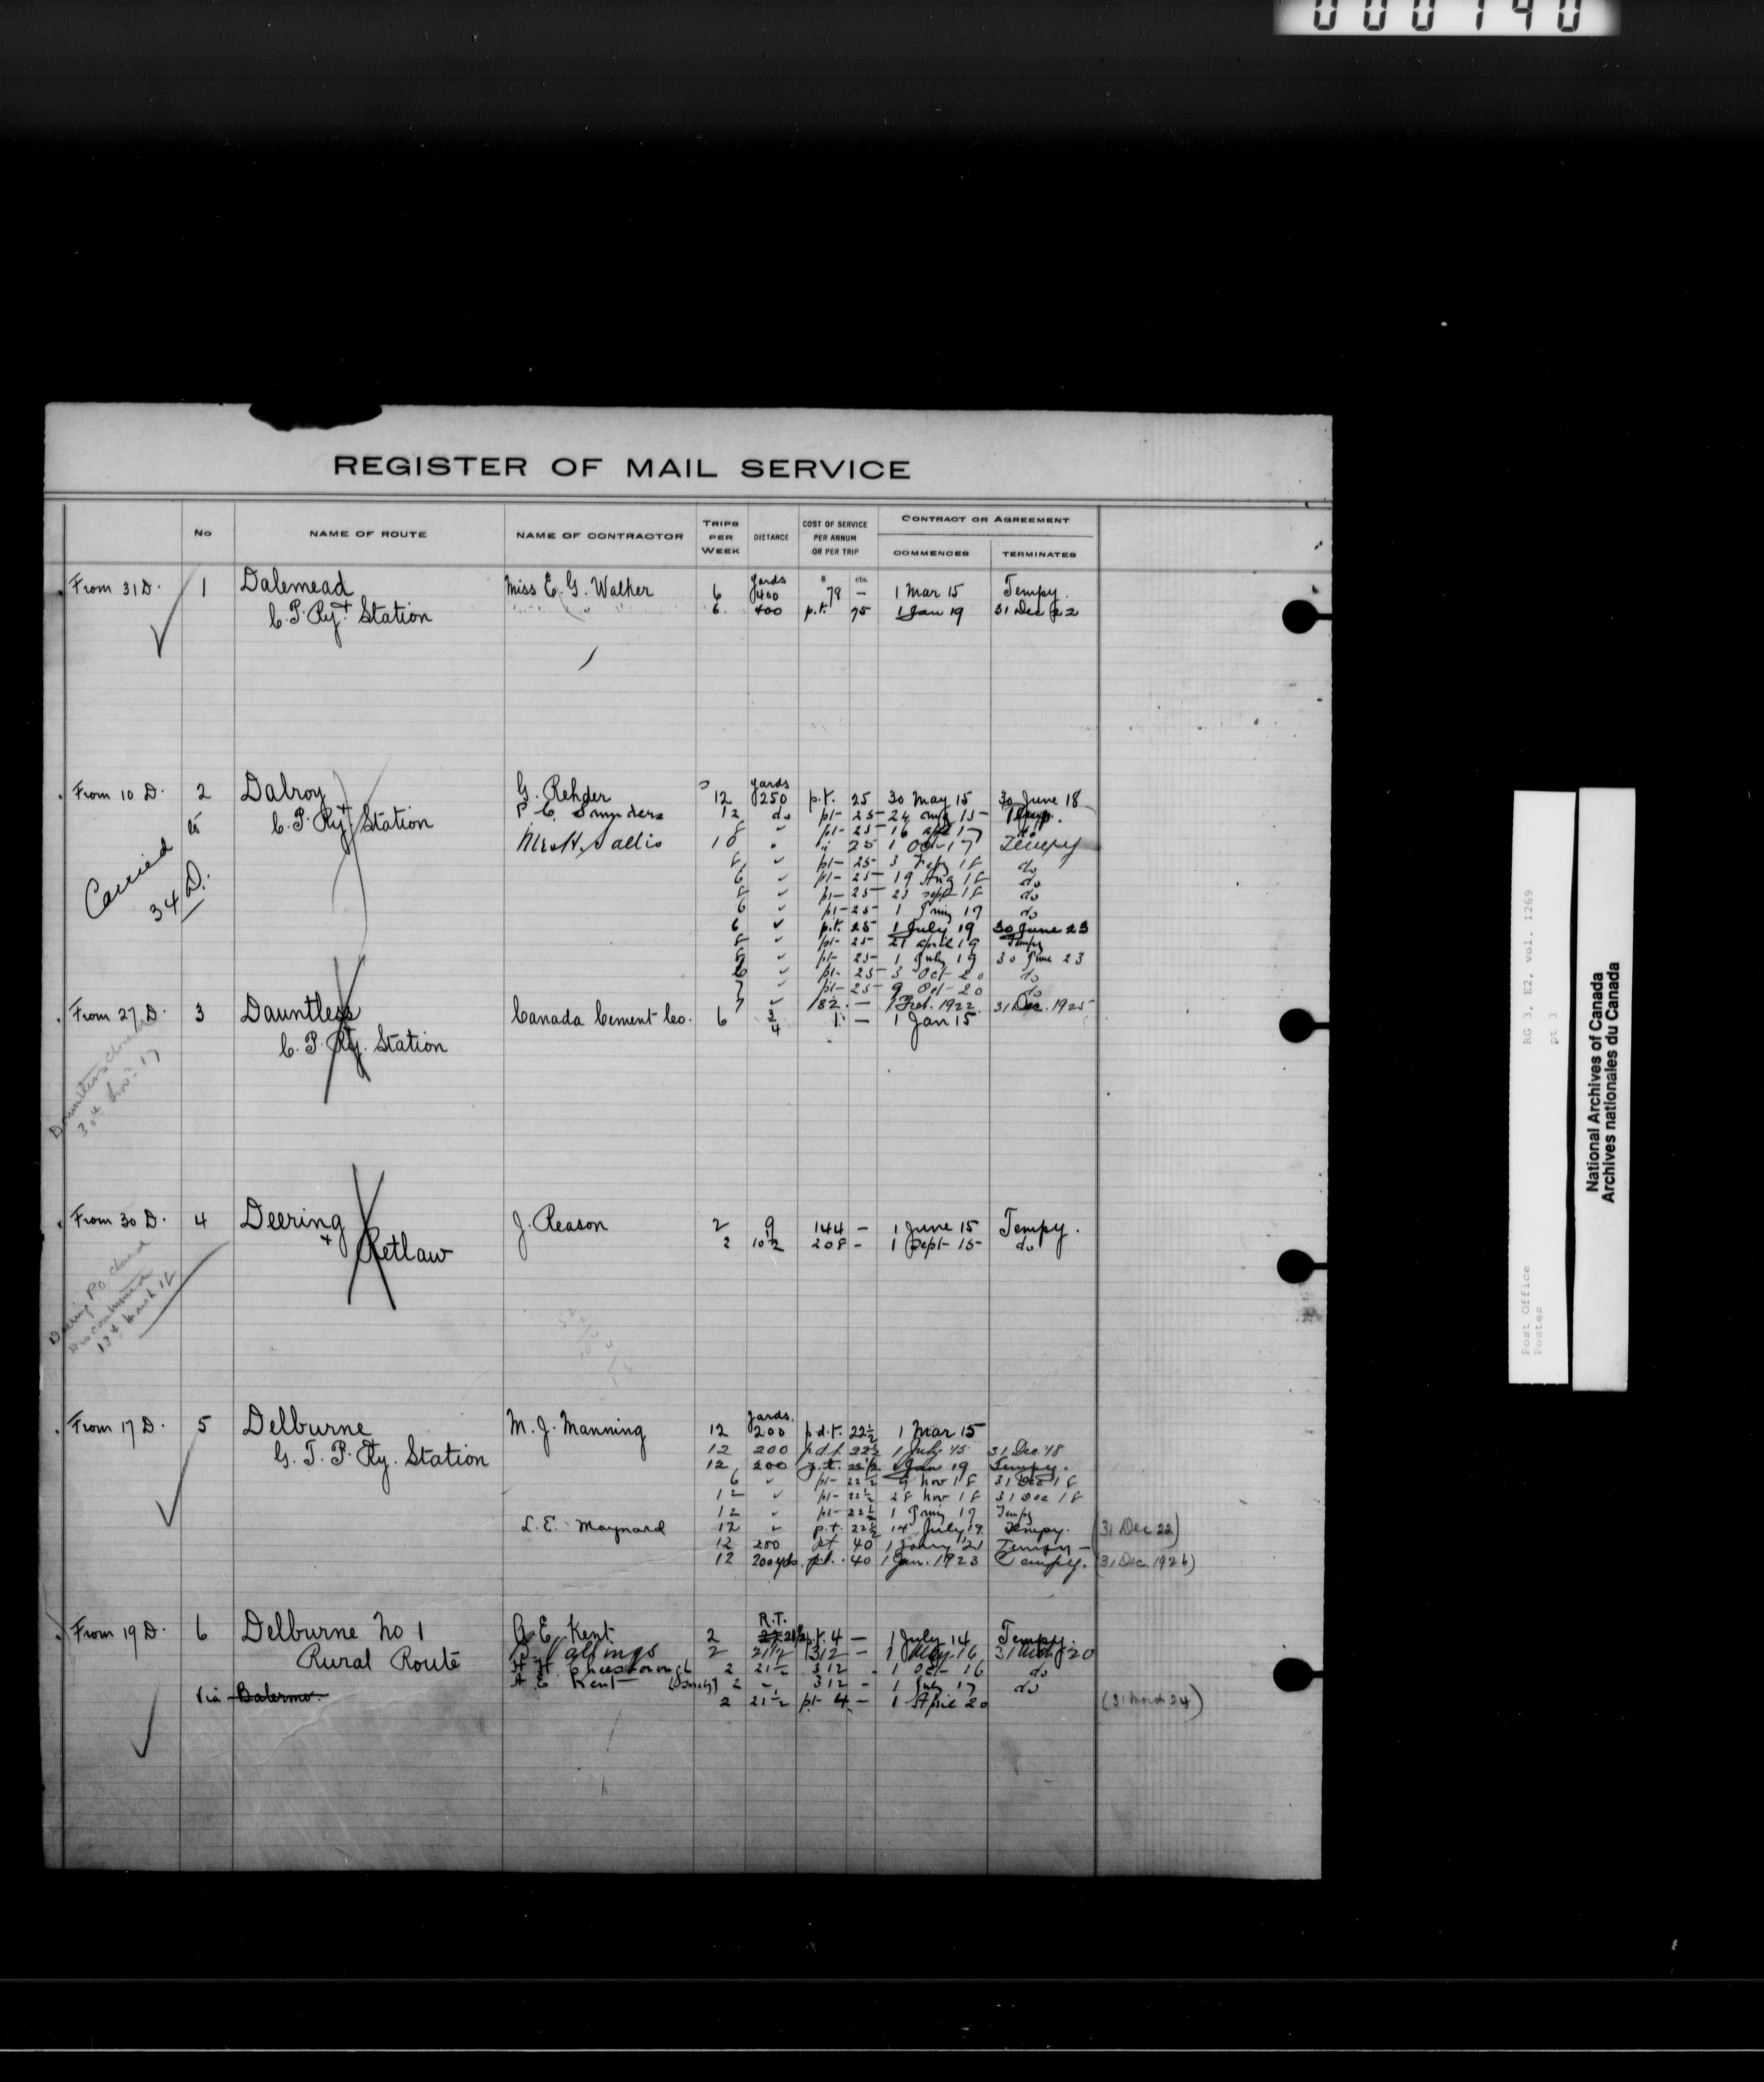 000740
REGISTER OF MAIL SERVICE
No
NAME OF ROUTE
NAME OF CONTRACTOR
TRIPS PER WEEK
DISTANCE
COST OF SERVICE PER ANNUM OR PER TRIP
CONTRACT OR AGREEMENT
COMMENCES
TERMINATES
$ cts.
yards
From 31 D. 1 Dalemead Miss E. G. Walker 6 400 78 — 1 Mar 15 Tempy.
C. P. Ry + Station " " " 6 400 p.t. 75 1 Jan 19 31 Dec 22
yards
From 10 D. 2 Dalroy + G. Rehder 12 250 p.t. 25 30 May 15 30 June 18
C. P. Ry. Station P. C. Saunders 12 do pt- 25 24 aug 15 Tempy.
8 " pt- 25 16 apl 17 do
Mrs H. Sallis 10 " " 25 1 Oct 17 Tempy
8 " pt- 25 3 Feby 18 do
6 " pt- 25 19 Aug 18 do
8 " pt- 25 23 sept 18 do
6 " pt- 25 1 Jany 19 do
6 " p.t. 25 1 July 19 30 June 23
8 " pt- 25 21 april 19 Tempy
8 " pt- 25 1 July 19 30 June 23
6 " pt- 25 3 Oct 20 do
7 " pt- 25 9 Oct 20 do
7 " 182. — 1 Feb. 1922 31 Dec. 1925
Carried to 34 D.
From 27 D. 3 Dauntless Canada Cement Co. 6 3/4 1 — 1 Jan 15
C. P. Ry. Station
Dauntless closed
30th Nov. 17
From 30 D. 4 Deering J. Reason 2 9 144 — 1 June 15 Tempy.
+ Retlaw 2 10½ 208 - 1 Sept 15 do
Deering P.O. closed
Discontinued
13th March 18
yards.
From 17 D. 5 Delburne M. J. Manning 12 200 p.d.t. 22½ 1 Mar 15
G. T. P. Ry. Station 12 200 p.d.t. 22½ 1 July 15 31 Dec. 18
12 200 p.t. 22½ 1 Jan 19 Tempy.
6 " pt- 22½ 9 Nov 18 31 Dec 18
12 " pt- 22½ 28 Nov 18 31 Dec 18
12 " pt- 22½ 1 Jany 19 Tempy
L. E. Maynard 12 " p.t. 22½ 14 July 19 Tempy. (31 Dec 22)
12 200 pt 40 1 Jany '21 Tempy -
12 200 yds. p.t. 40 1 Jan. 1923 Tempy. (31 Dec. 1926)
R.T.
From 19 D. 6 Delburne No 1 A. E. Kent 2 21½ p.t. 4 — 1 July 14 Tempy.
Rural Route 2 21½ 312 — 1 May 16 31 Mch 20
2 21½ 312 - 1 Oct- 16 do
A. E. Kent 2 " 312 - 1 July 17 do
Via Balermo. 2 21½ pt- 4 — 1 April 20 (31 March 24)
RG 3, E2, vol. 1269
pt 3
Post Office
Postes
National Archives of Canada
Archives nationales du Canada